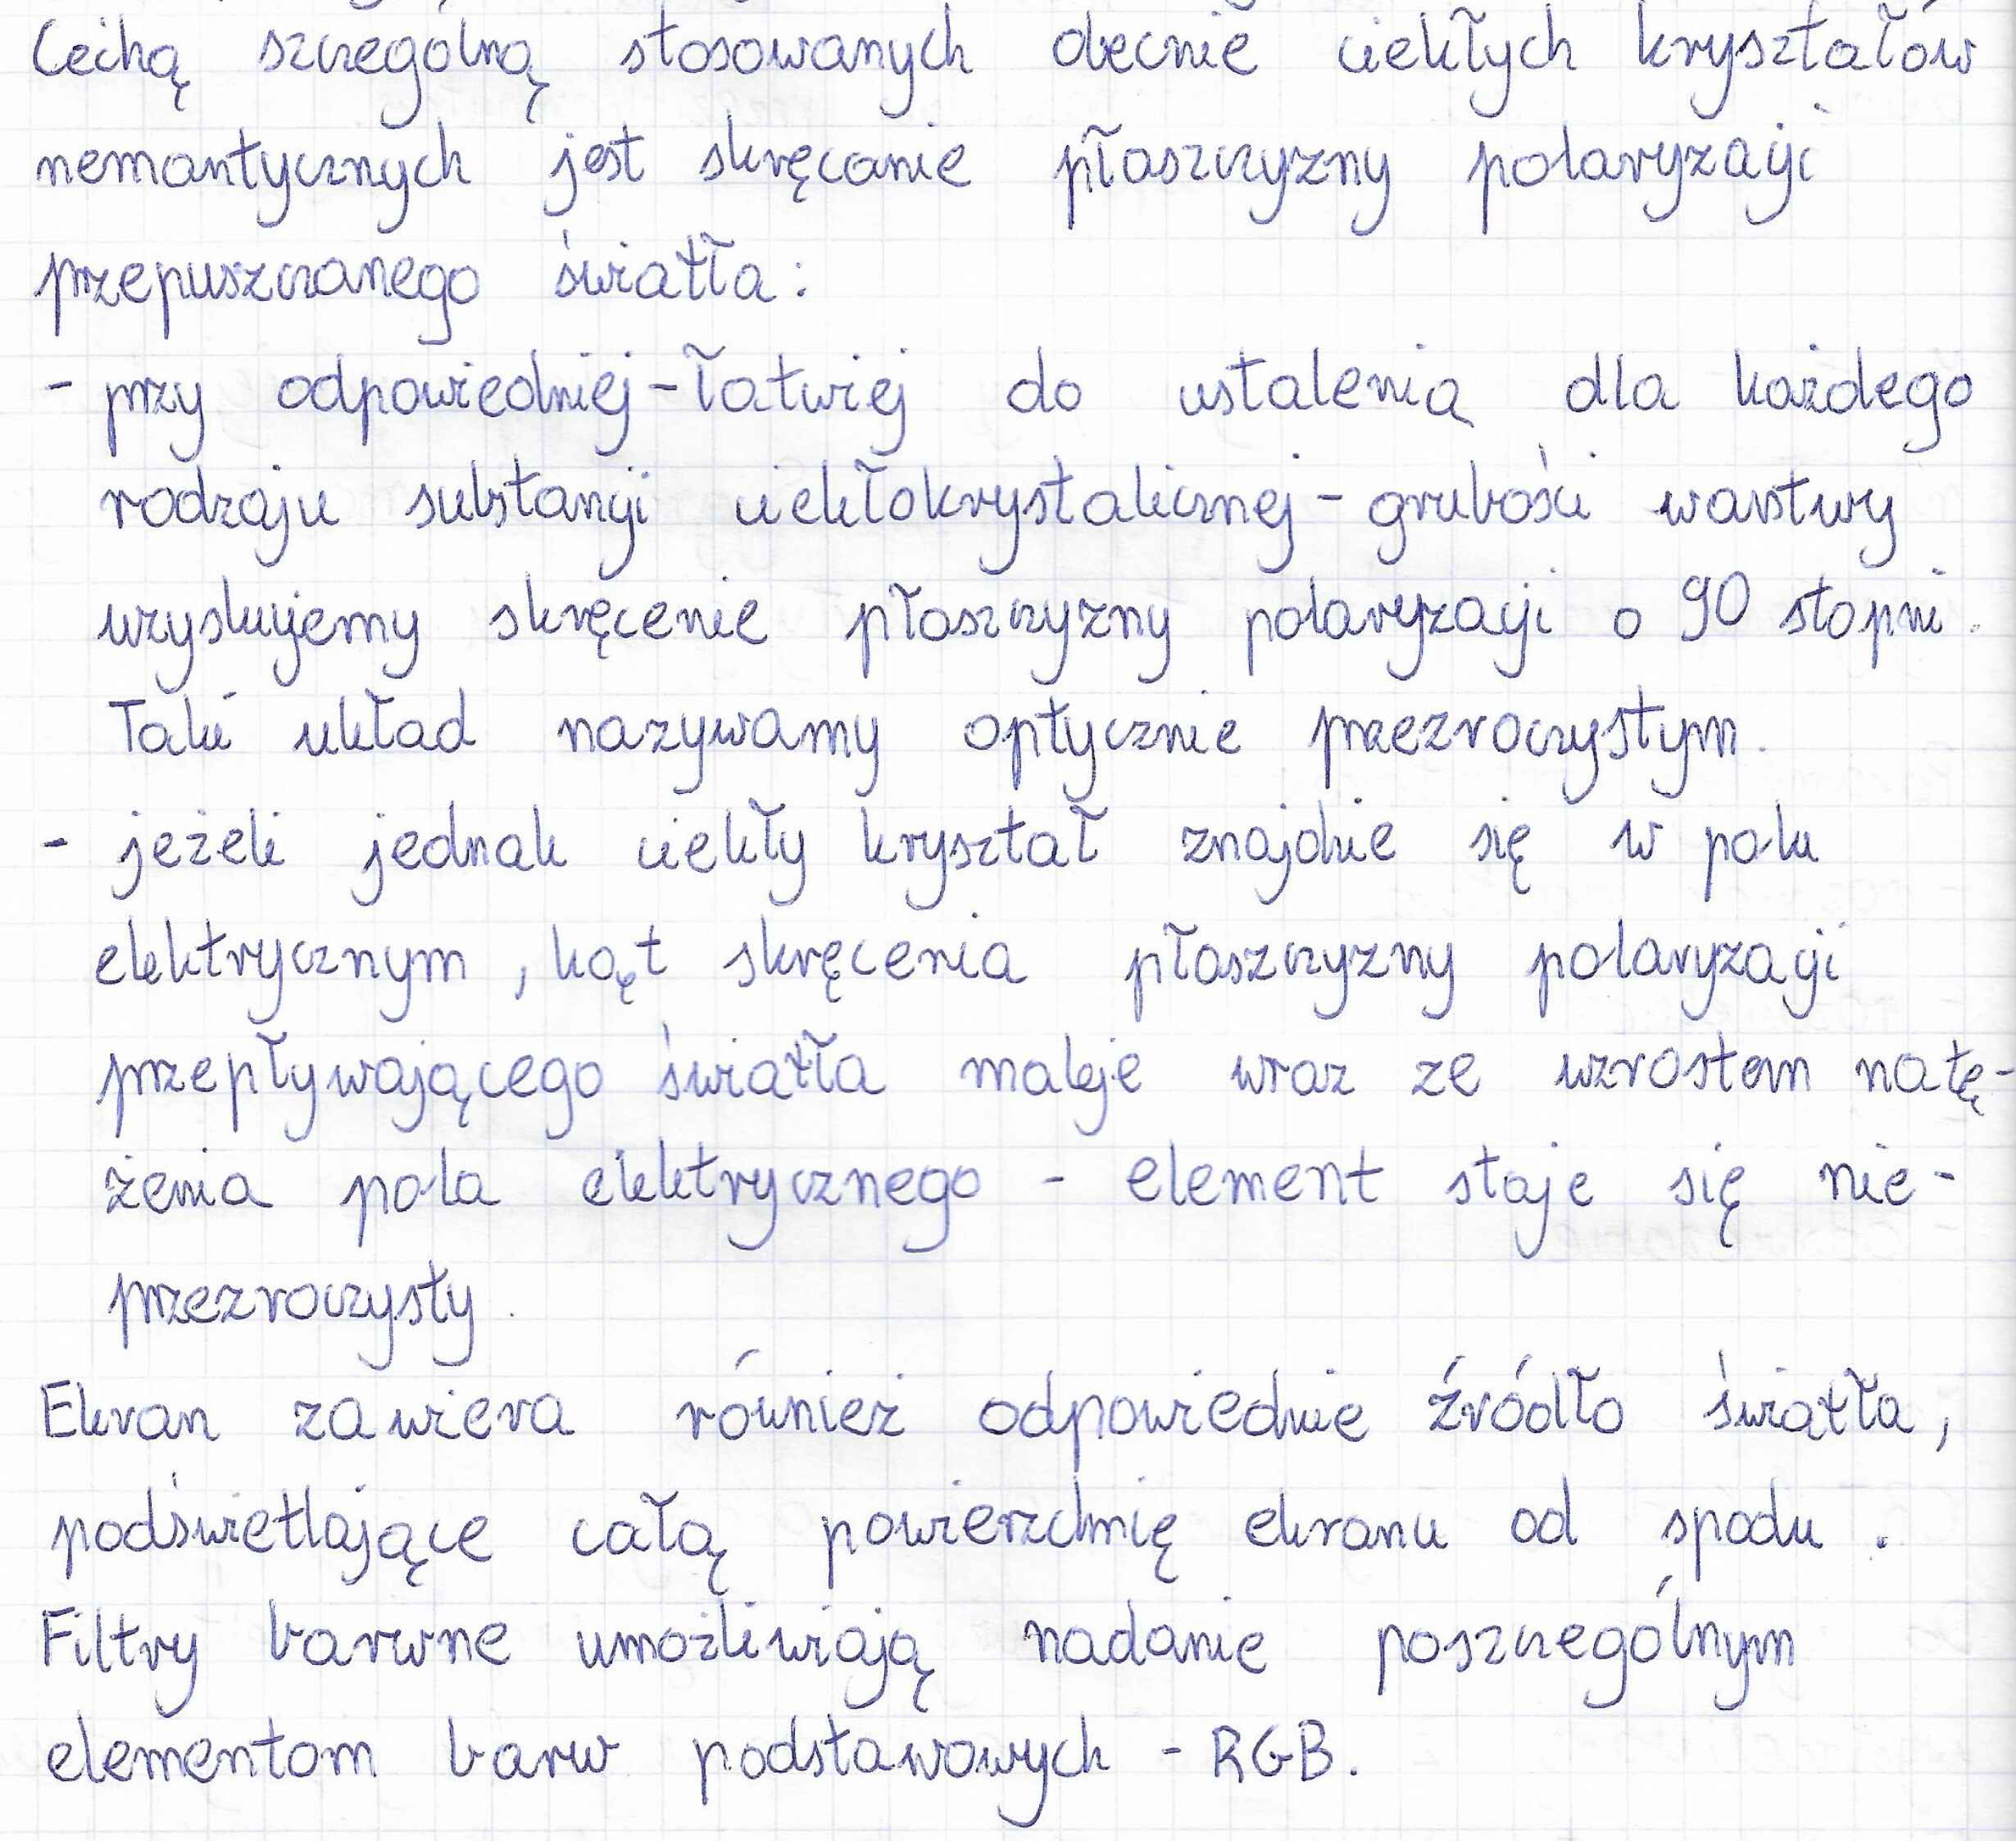 Cechą szczególną stosowanych obecnie ciekłych kryształów
nemantycznych jest skręcanie płaszczyzny polaryzacji
przepuszczanego światła:
- przy odpowiedniej - łatwiej do ustalenia dla każdego
rodzaju substancji ciekłokrystalicznej - grubości warstwy
uzyskujemy skręcenie płaszczyzny polaryzacji o 90 stopni.
Taki układ nazywamy optycznie przezroczystym.
- jeżeli jednak ciekły kryształ znajdzie się w polu
elektrycznym, kąt skręcenia płaszczyzny polaryzacji
przepływającego światła maleje wraz ze wzrostem natę-
żenia pola elektrycznego - element staje się nie-
przezroczysty.
Ekran zawiera również odpowiednie źródło światła,
podświetlające całą powierzchnię ekranu od spodu.
Filtry barwne umożliwiają nadanie poszczególnym
elementom barw podstawowych - RGB.